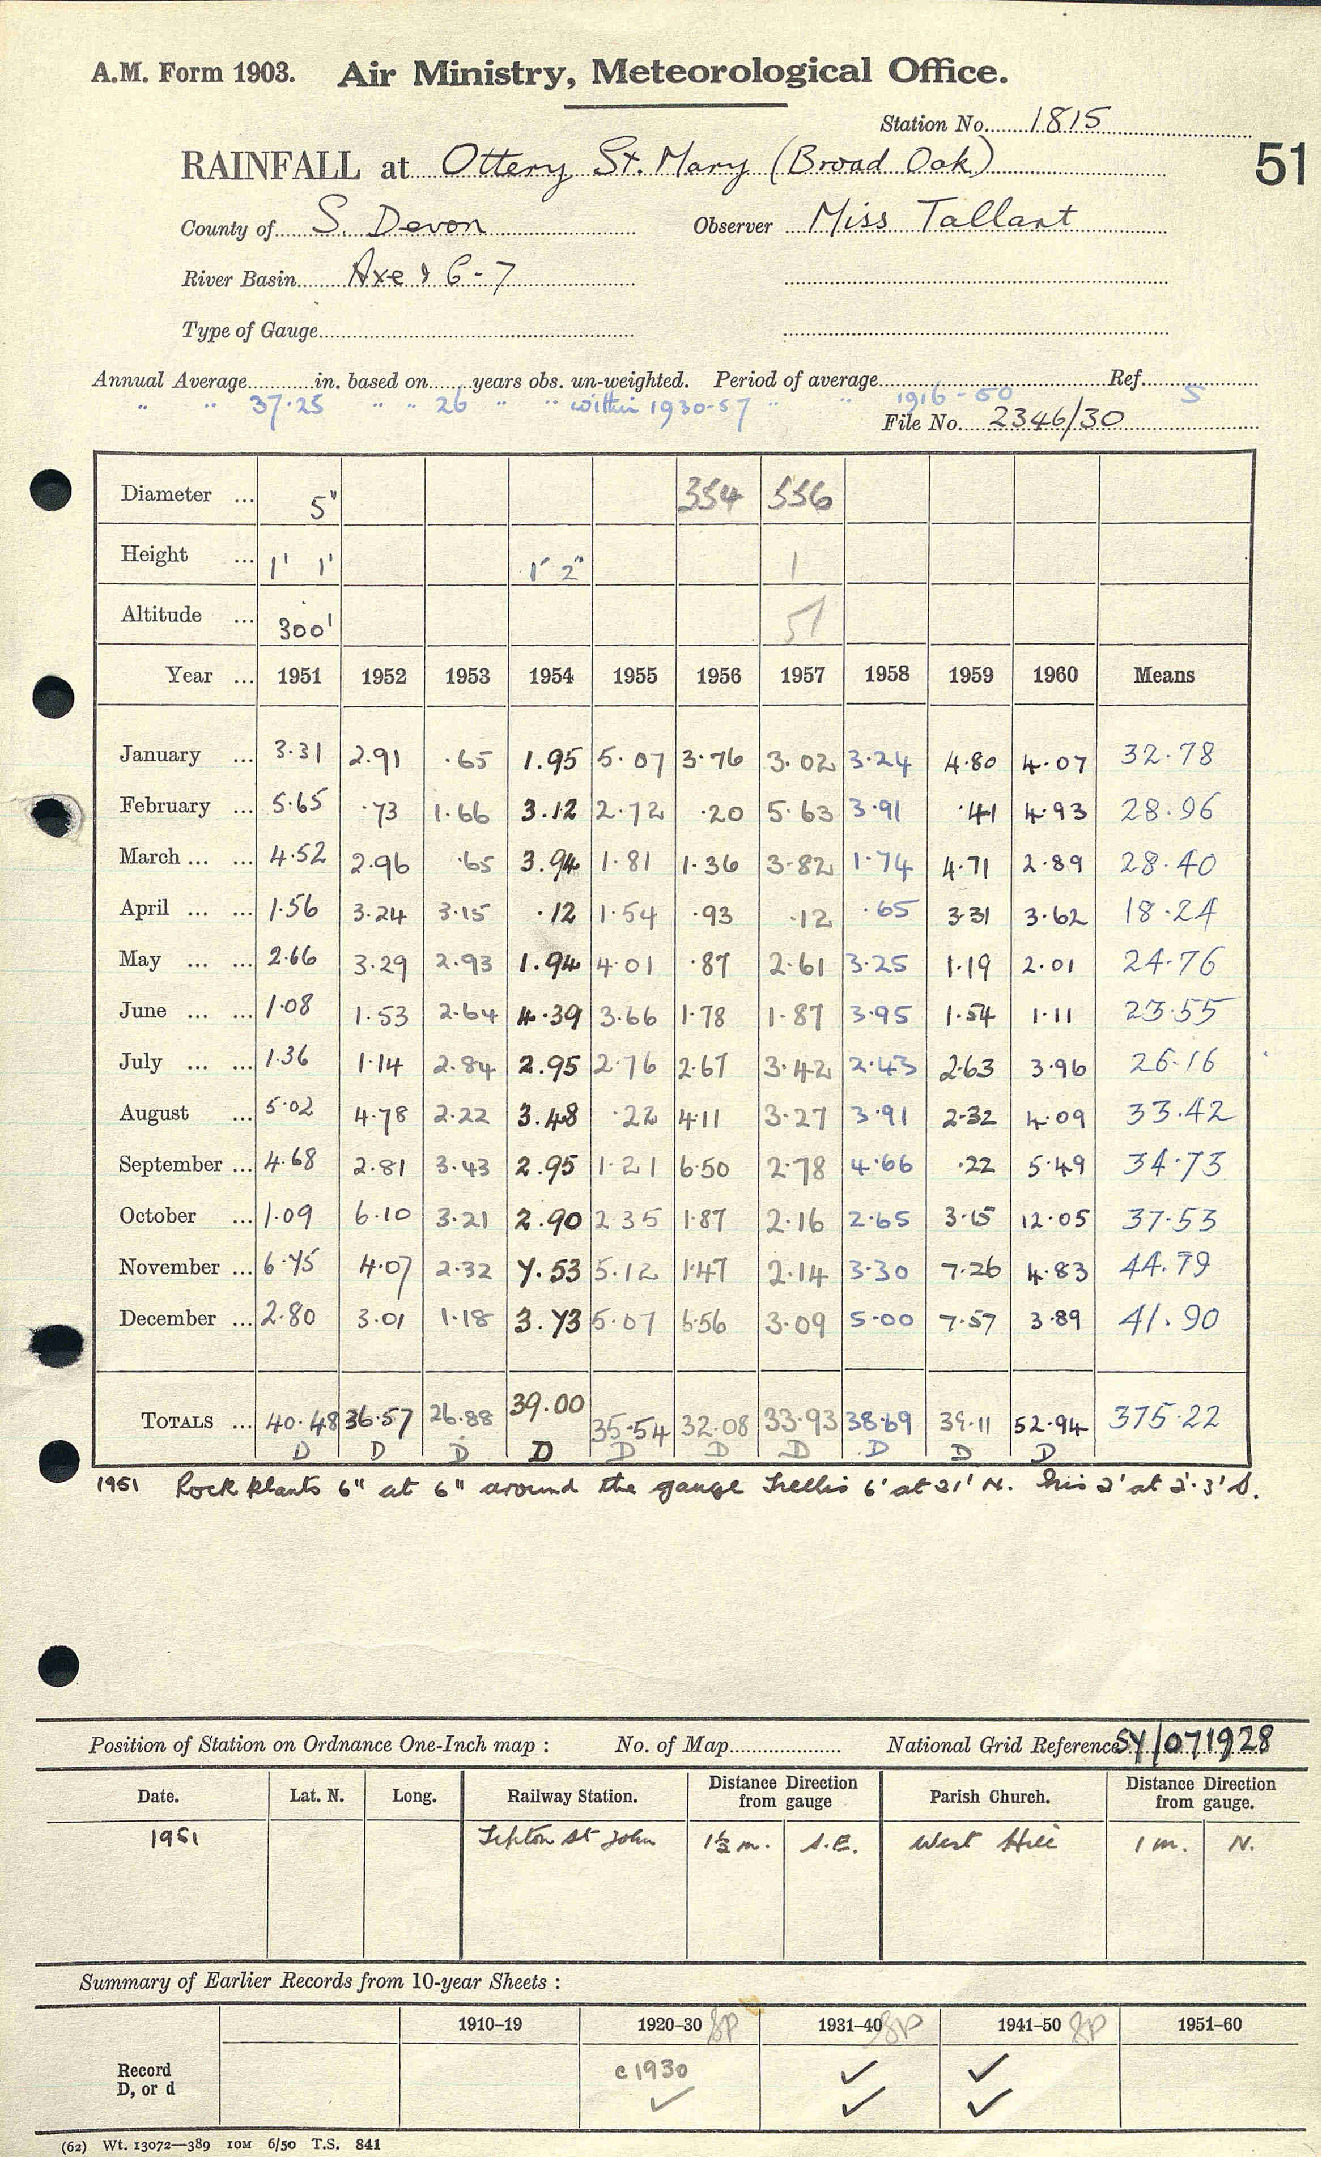 A.M. Form 1903. Air Ministry, Meteorological Office.
Station No. 1815
RAINFALL at Ottery St. Mary (Broad Oak)
51
County of S. Devon Observer Miss Tallant
River Basin Axe & 6-7
Type of Gauge
Annual Average in. based on years obs. un-weighted. Period of average Ref.
" " 37.25 " " 26 " " within 1930-57 " " 1916-50 5
File No. 2346/30
Diameter ... 5" 354 556
Height ... 1' 1' 1' 2" 1
Altitude ... 300' 51
Year ... 1951 1952 1953 1954 1955 1956 1957 1958 1959 1960 Means
January ... 3.31 2.91 .65 1.95 5.07 3.76 3.02 3.24 4.80 4.07 32.78
February ... 5.65 .73 1.66 3.12 2.72 .20 5.63 3.91 .41 4.93 28.96
March ... ... 4.52 2.96 .65 3.94 1.81 1.36 3.82 1.74 4.71 2.89 28.40
April ... ... 1.56 3.24 3.15 .12 1.54 .93 .12 .65 3.31 3.62 18.24
May ... ... 2.66 3.29 2.93 1.94 4.01 .87 2.61 3.25 1.19 2.01 24.76
June ... ... 1.08 1.53 2.64 4.39 3.66 1.78 1.87 3.95 1.54 1.11 23.55
July ... ... 1.36 1.14 2.84 2.95 2.76 2.67 3.42 2.43 2.63 3.96 26.16
August ... 5.02 4.78 2.22 3.48 .22 4.11 3.27 3.91 2.32 4.09 33.42
September ... 4.68 2.81 3.43 2.95 1.21 6.50 2.78 4.66 .22 5.49 34.73
October ... 1.09 6.10 3.21 2.90 2.35 1.87 2.16 2.65 3.15 12.05 37.53
November ... 6.75 4.07 2.32 7.53 5.12 1.47 2.14 3.30 7.26 4.83 44.79
December ... 2.80 3.01 1.18 3.73 5.07 6.56 3.09 5.00 7.57 3.89 41.90
TOTALS ... 40.48 36.57 26.88 39.00 35.54 32.08 33.93 38.69 39.11 52.94 375.22
D D D D D D D D D D
1951 Rock Plants 6" at 6" around the gauge Trellis 6' at 21' N. Iris 2' at 2'.3' S.
Position of Station on Ordnance One-Inch map : No. of Map National Grid Reference SY/071928
Date. Lat. N. Long. Railway Station. Distance Direction from gauge Parish Church. Distance Direction from gauge.
1951 Tipton St John 1½ m. S.E. West Hill 1 m. N.
Summary of Earlier Records from 10-year Sheets :
1910–19 1920–30 SP 1931–40 SP 1941–50 SP 1951–60
Record c1930 ✓ ✓
D, or d ✓ ✓ ✓
(62) Wt. 13072—389 10M 6/50 T.S. 841